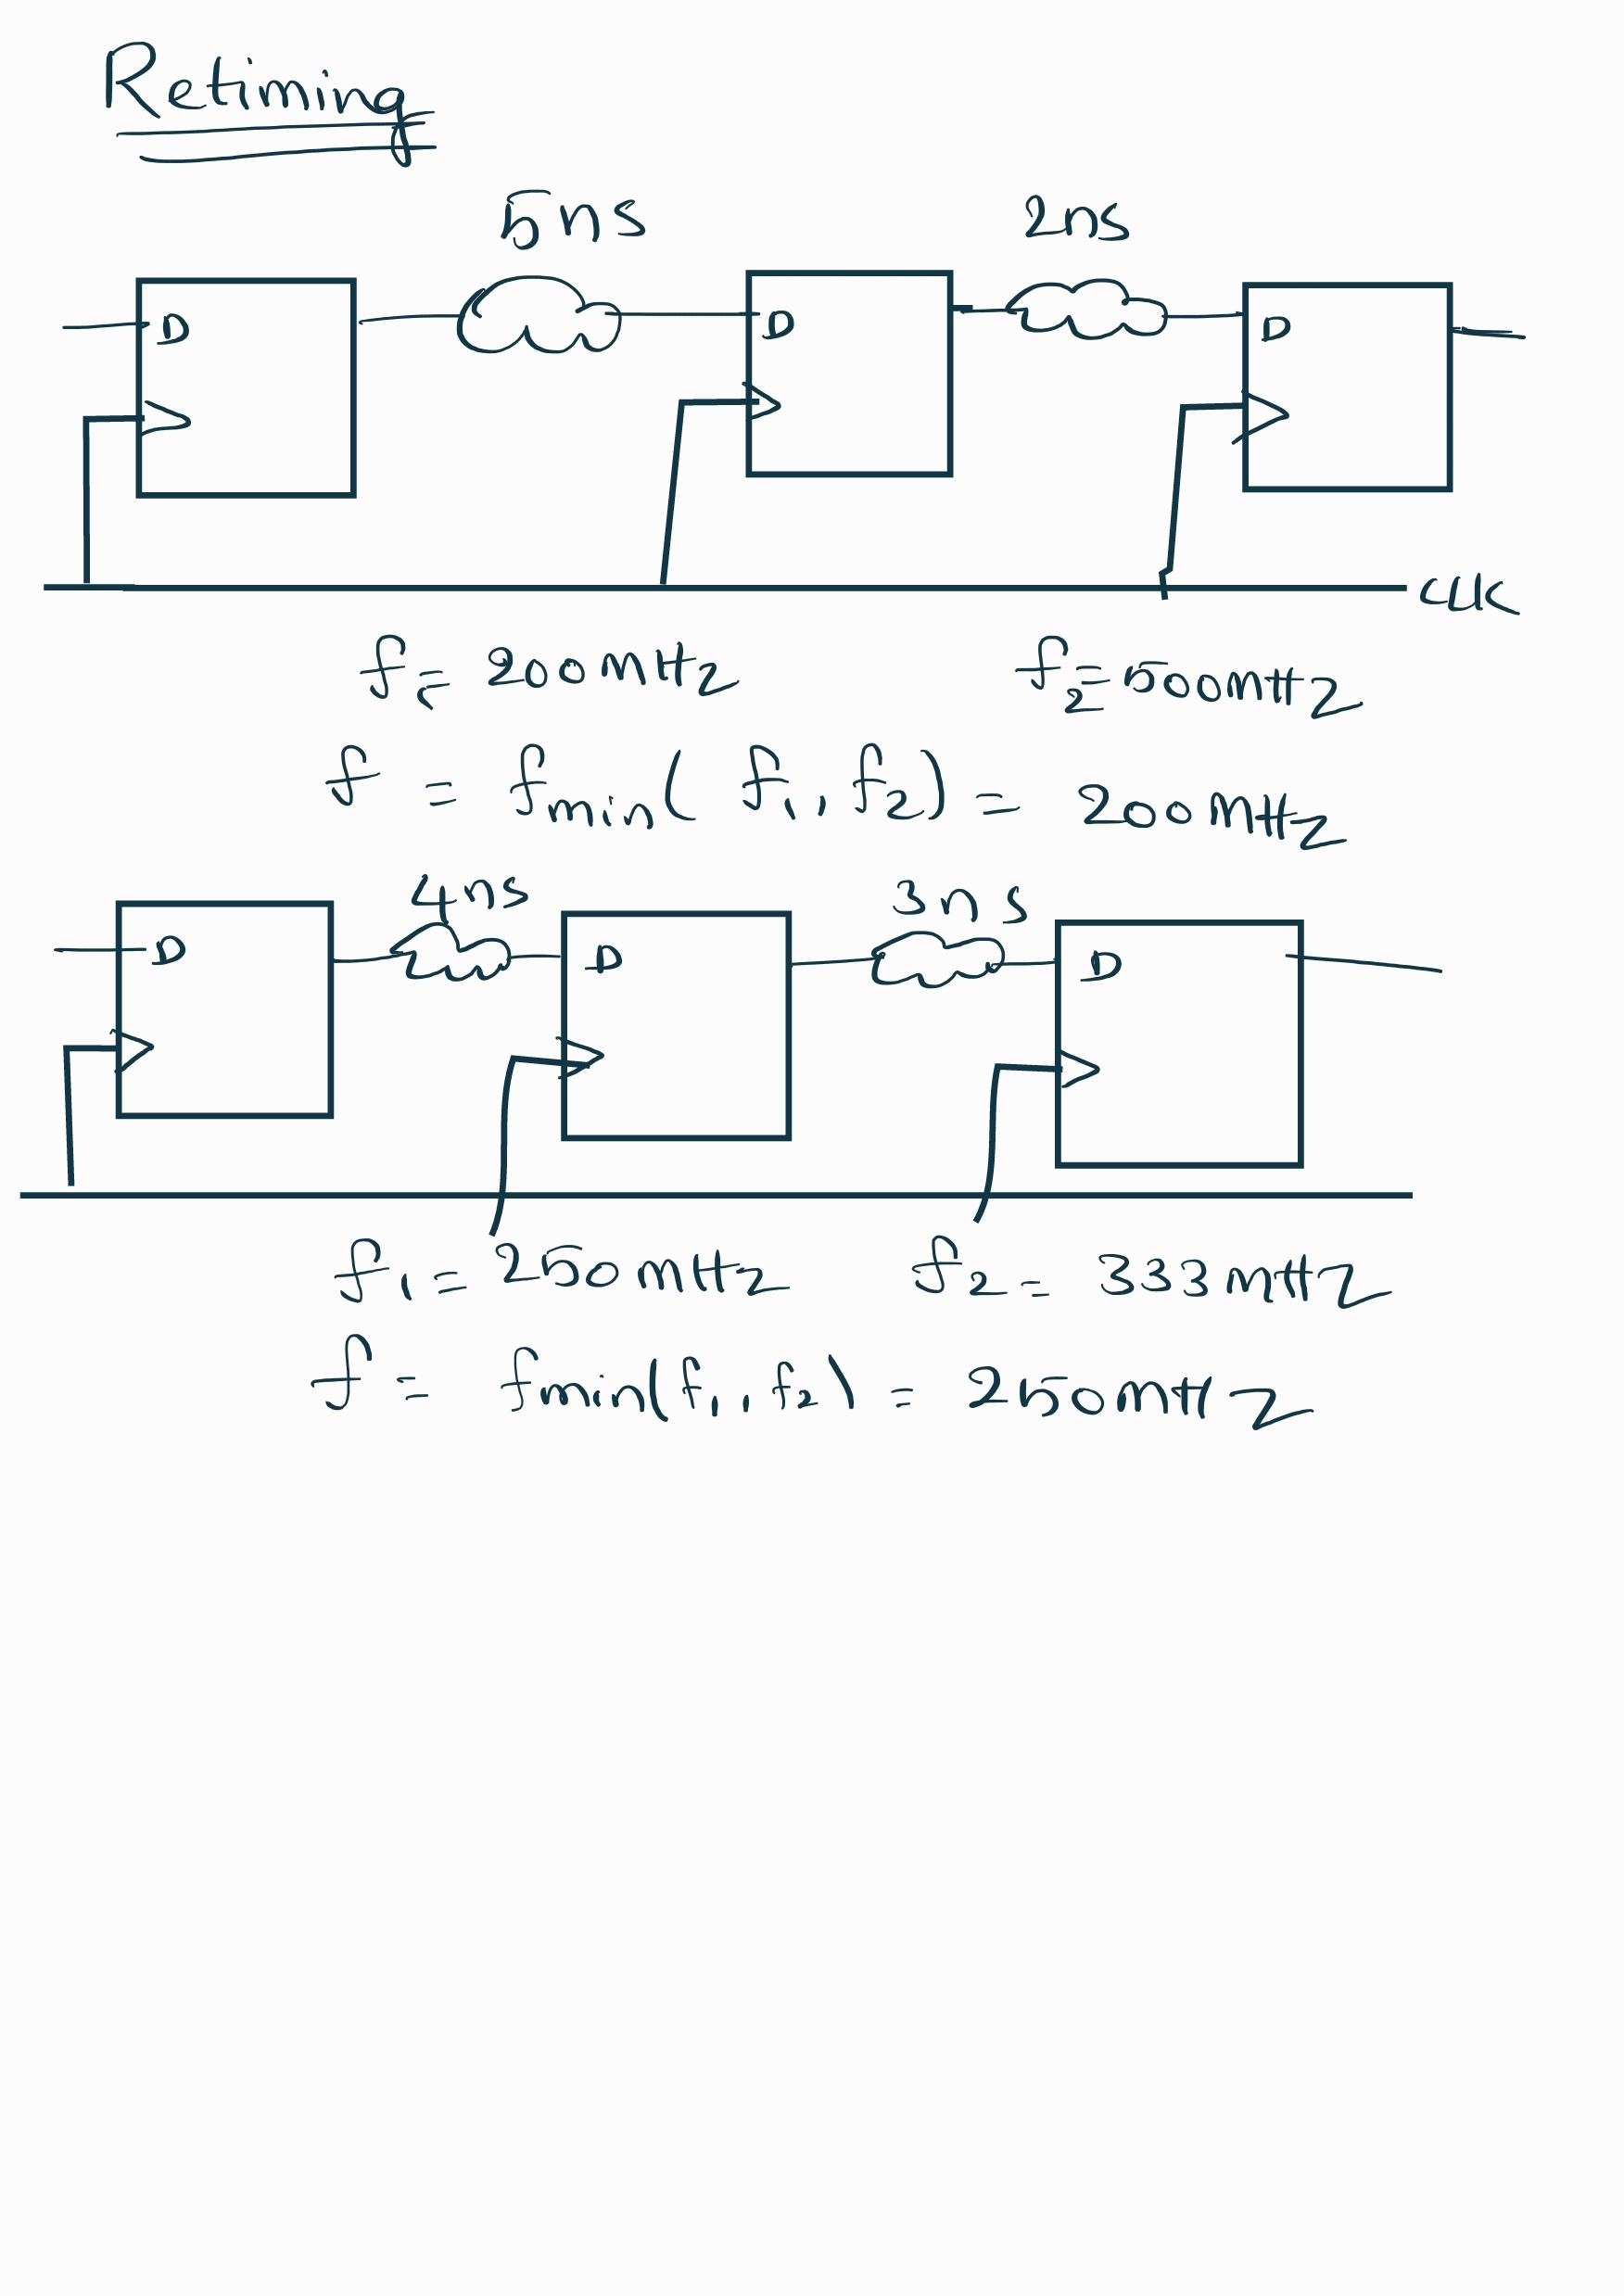 Retiming
5ns 2ns
D D D
CLK
f1 = 200MHz f2 = 500MHz
f = fmin( f1, f2) = 200MHz
4ns 3ns
D D D
f1 = 250MHz f2 = 333MHz
f = fmin(f1, f2) = 250MHz